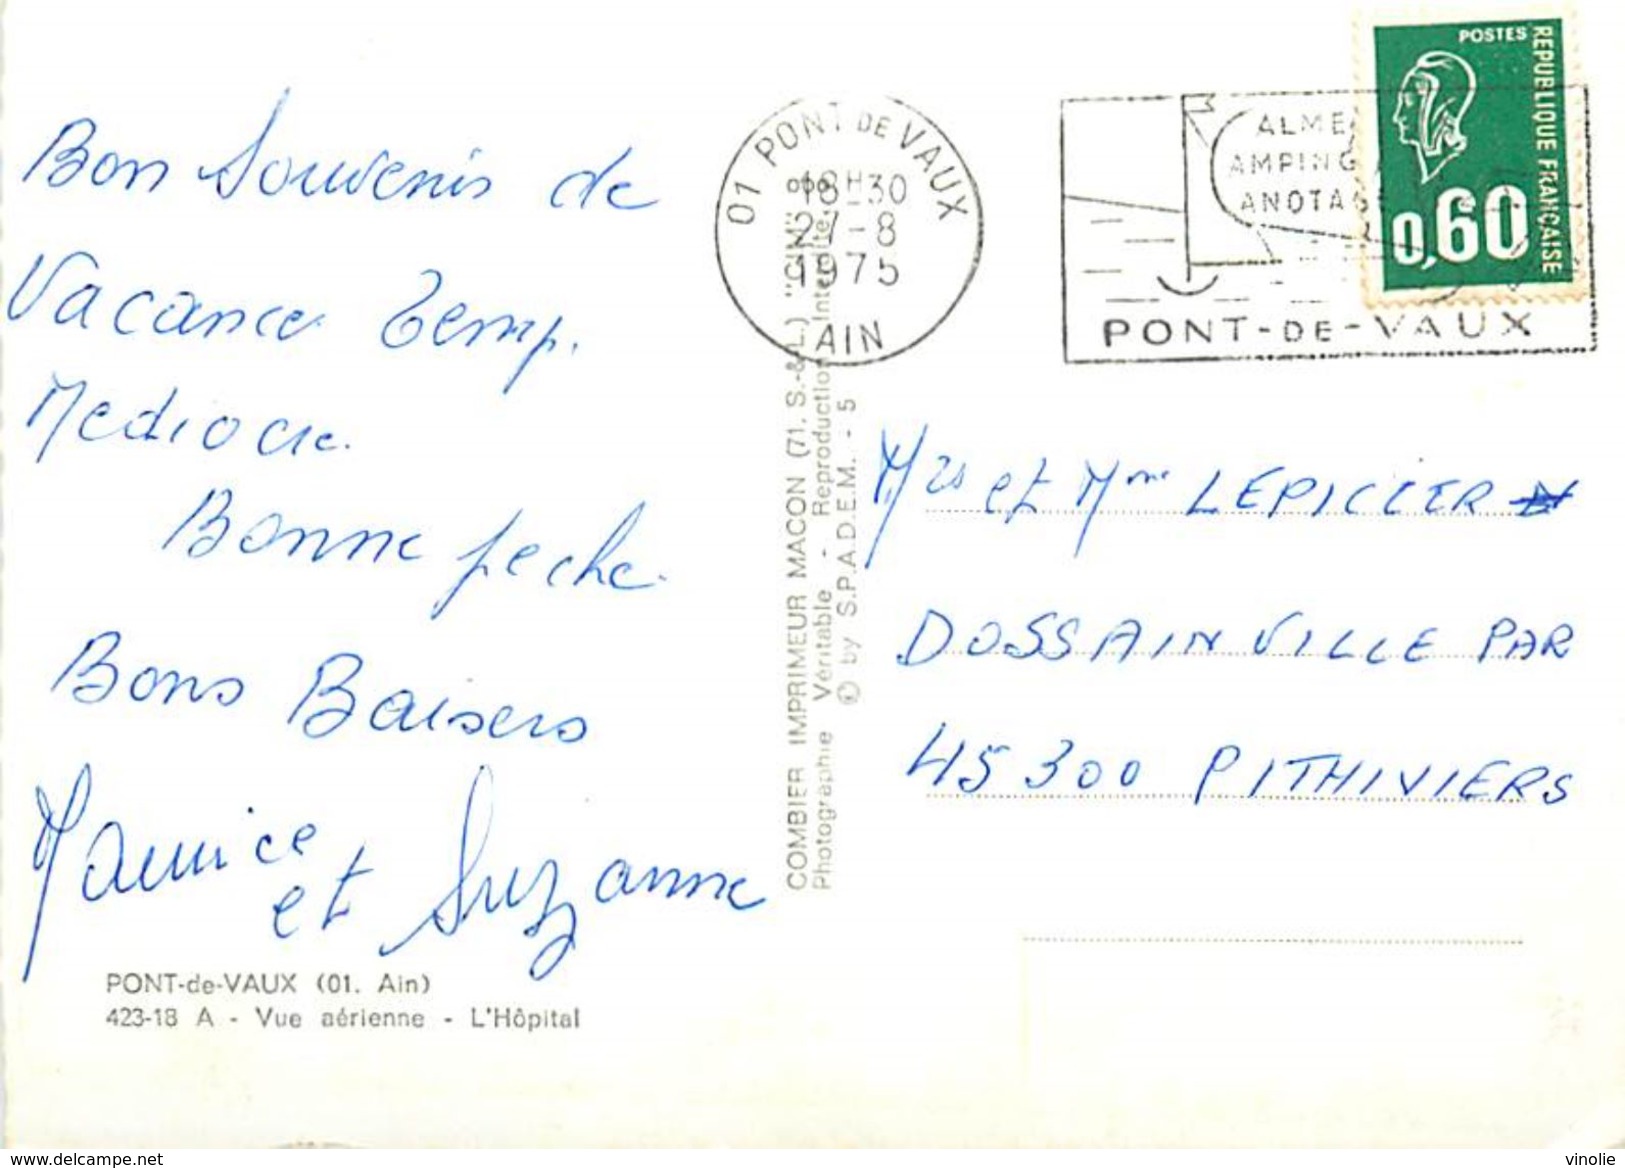 Bon Souvenir de
Vacance Temp.
Mediocre.
Bonne peche.
Bons Baisers
Maurice
et Suzanne
PONT-de-VAUX (01. Ain)
423-18 A - Vue aérienne - L'Hôpital
COMBIER IMPRIMEUR MACON (71. S.-& L.) "CIM"
Photographie Véritable - Reproduction Interdite
© by S.P.A.D.E.M. - 5
01 PONT DE VAUX
18H30
27-8
1975
AIN
ALME
AMPING
ANOTAGE
PONT-DE-VAUX
POSTES
REPUBLIQUE FRANÇAISE
0,60
Mrs et Mme LEPICIER
DOSSAINVILLE PAR
45300 PITHIVIERS
www.delcampe.net
vinolie